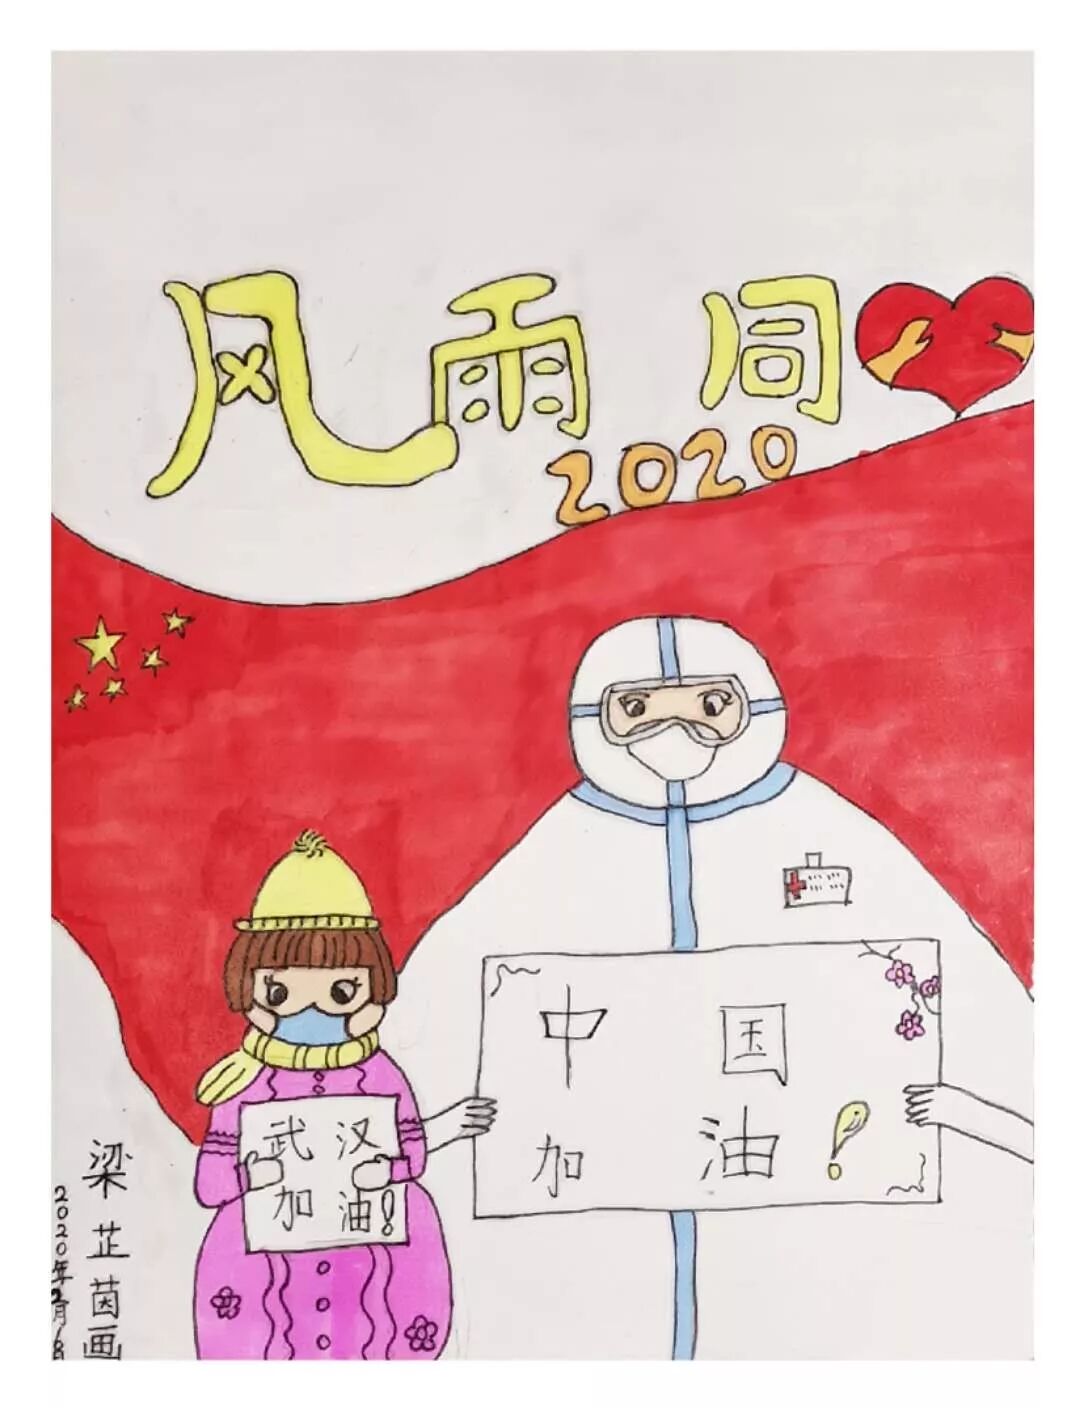 风雨同
2020
中国
加油!
武汉
加油!
梁芷茵画
2020年2月